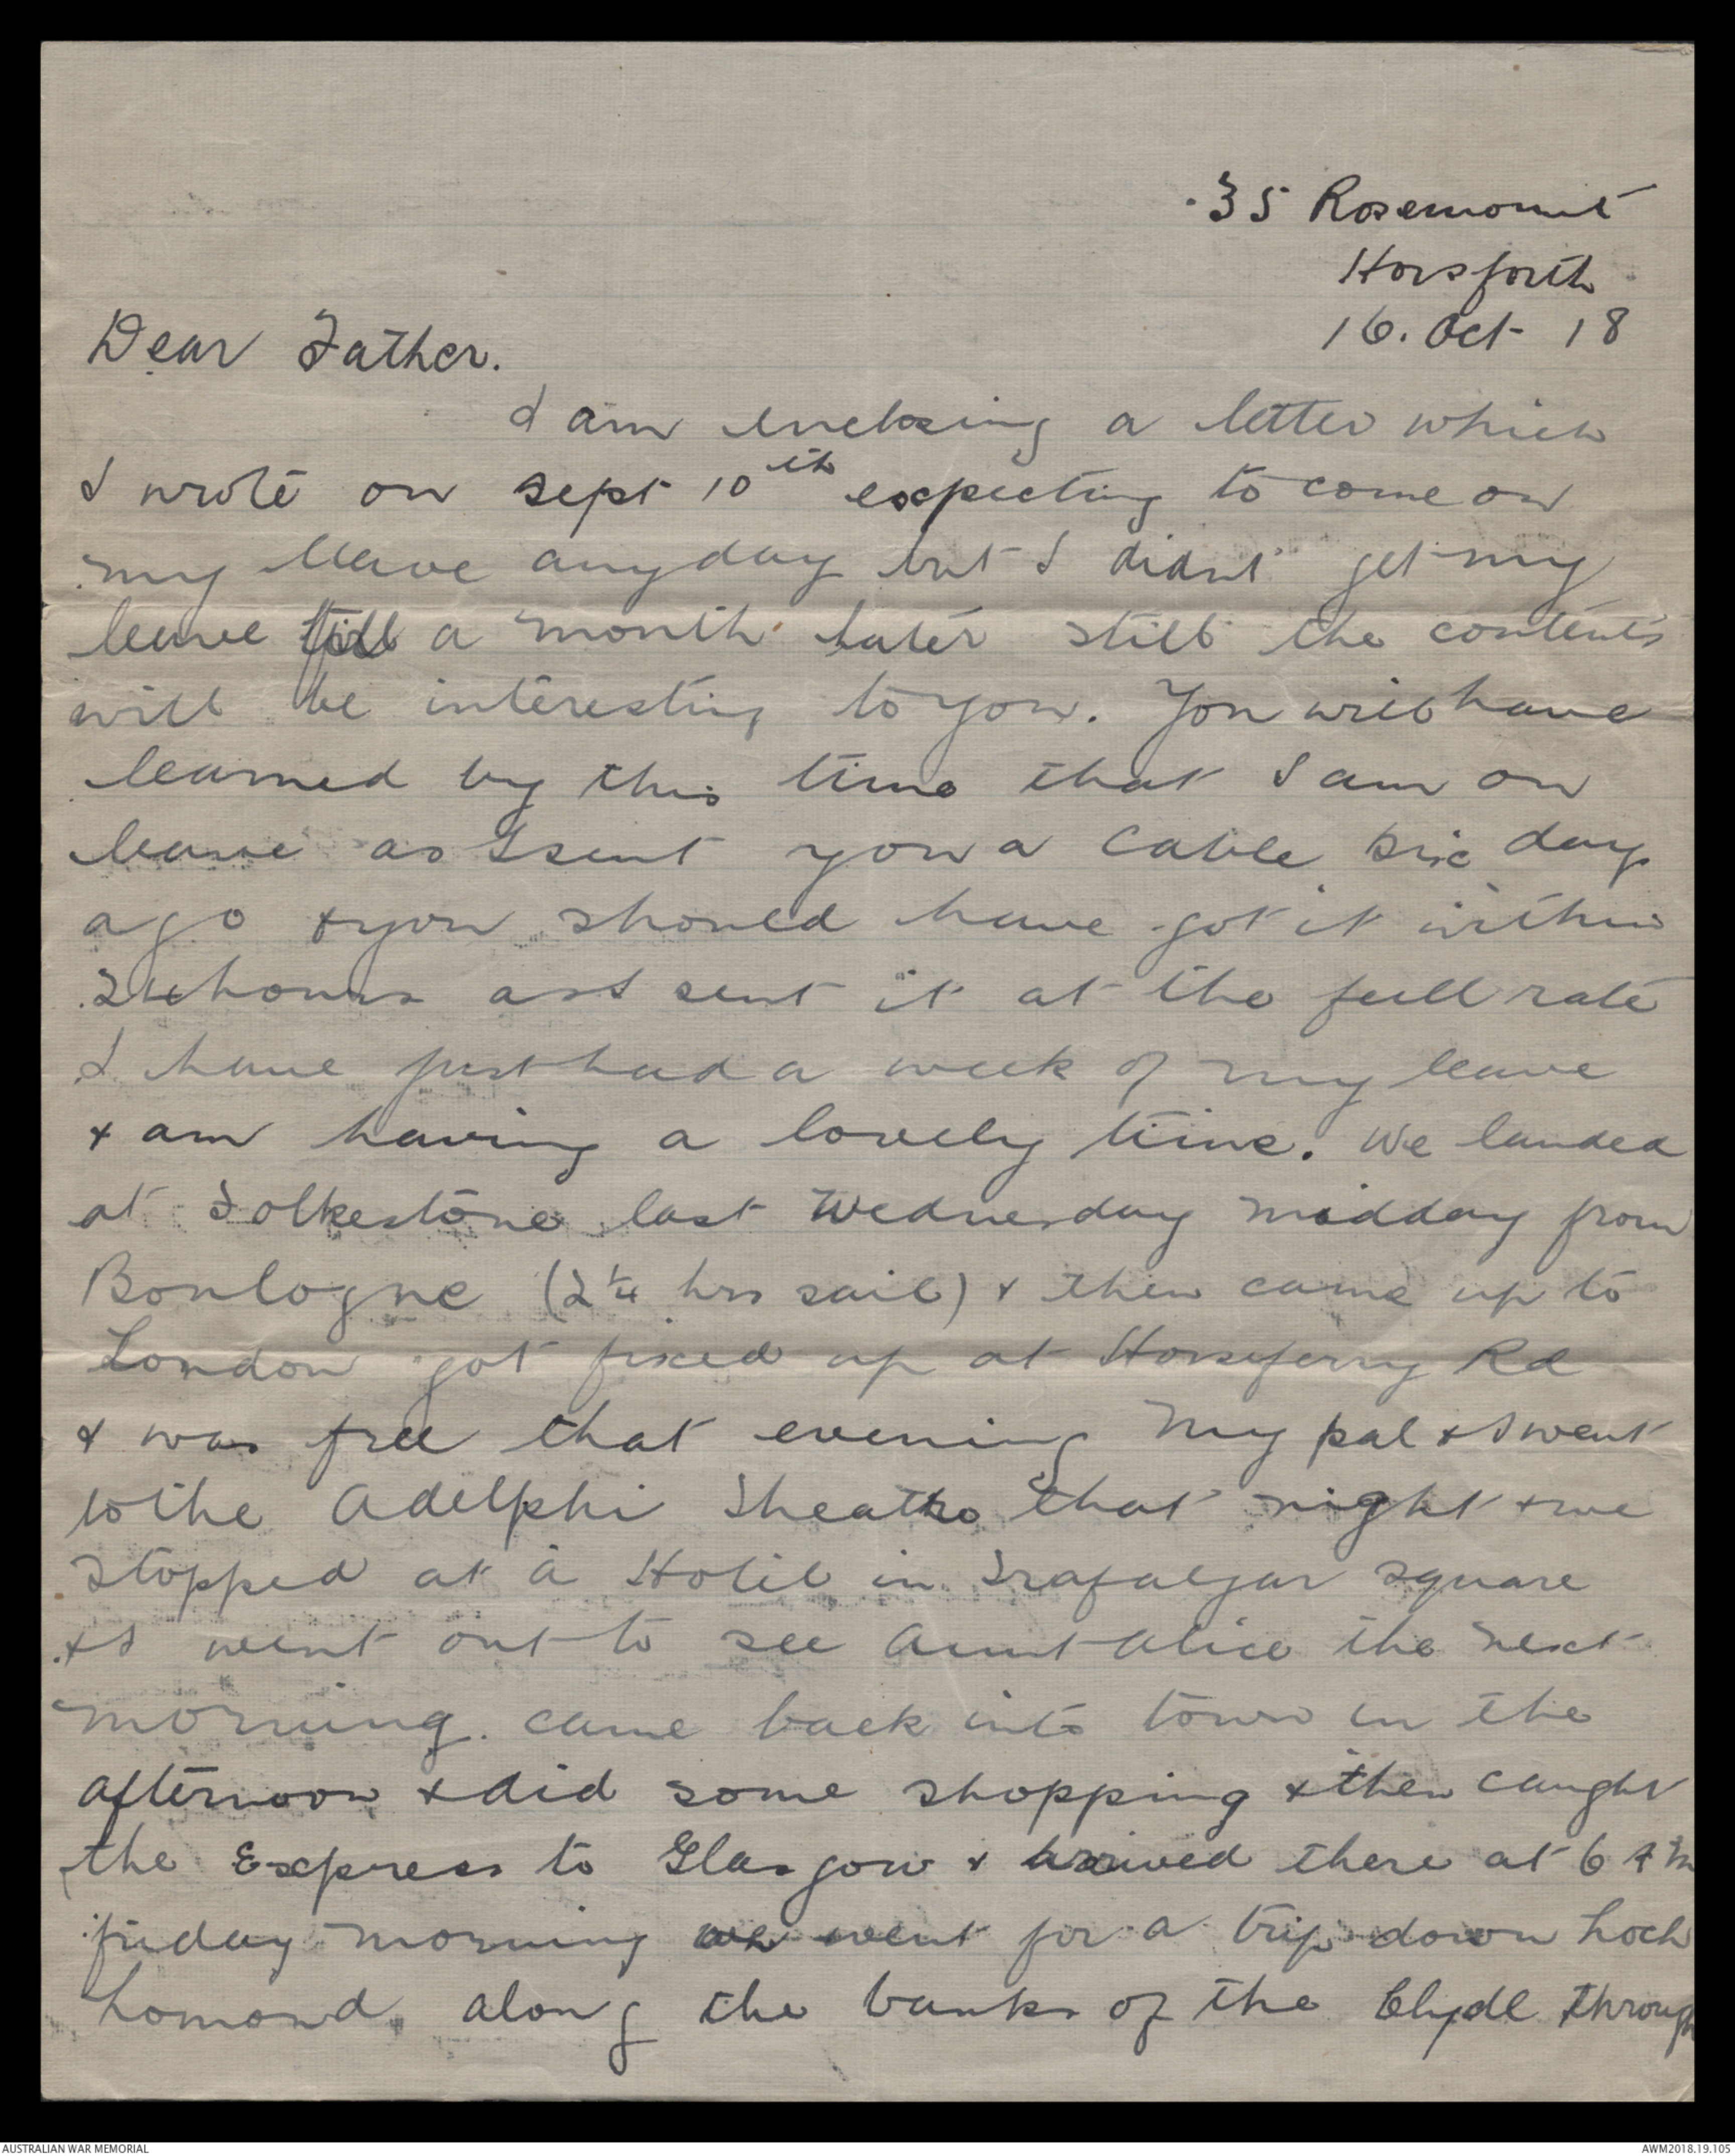 35 Rosemount
Horsforth
16. Oct 18
Dear Father.
I am enclosing a letter which
I wrote on Sept 10th expecting to come on
my leave anyday but I didnt get my
leave till a month later still the contents
will be interesting to you. You will have
learned by this time that I am on
leave as I sent you a cable six days
ago & you should have got it within
24 hours as I sent it at the full rate
I have just had a week of my leave
& am having a lovely time. We landed
at Folkestone last Wednesday midday from
Boulogne (2 1/4 hrs sail) & then came up to
London got fixed up at Horseferry Rd
& was free that evening My pal & I went
to the Adelphi Theatre that night & we
stopped at a Hotel in Trafalgar Square
& I went out to see Aunt Alice the next
morning. came back into town in the
afternoon & did some shopping & then caught
the Express to Glasgow & arrived there at 6 AM
friday morning we went for a trip down Loch
Lomond, along the banks of the Clyde through
AUSTRALIAN WAR MEMORIAL
AWM2018.19.105